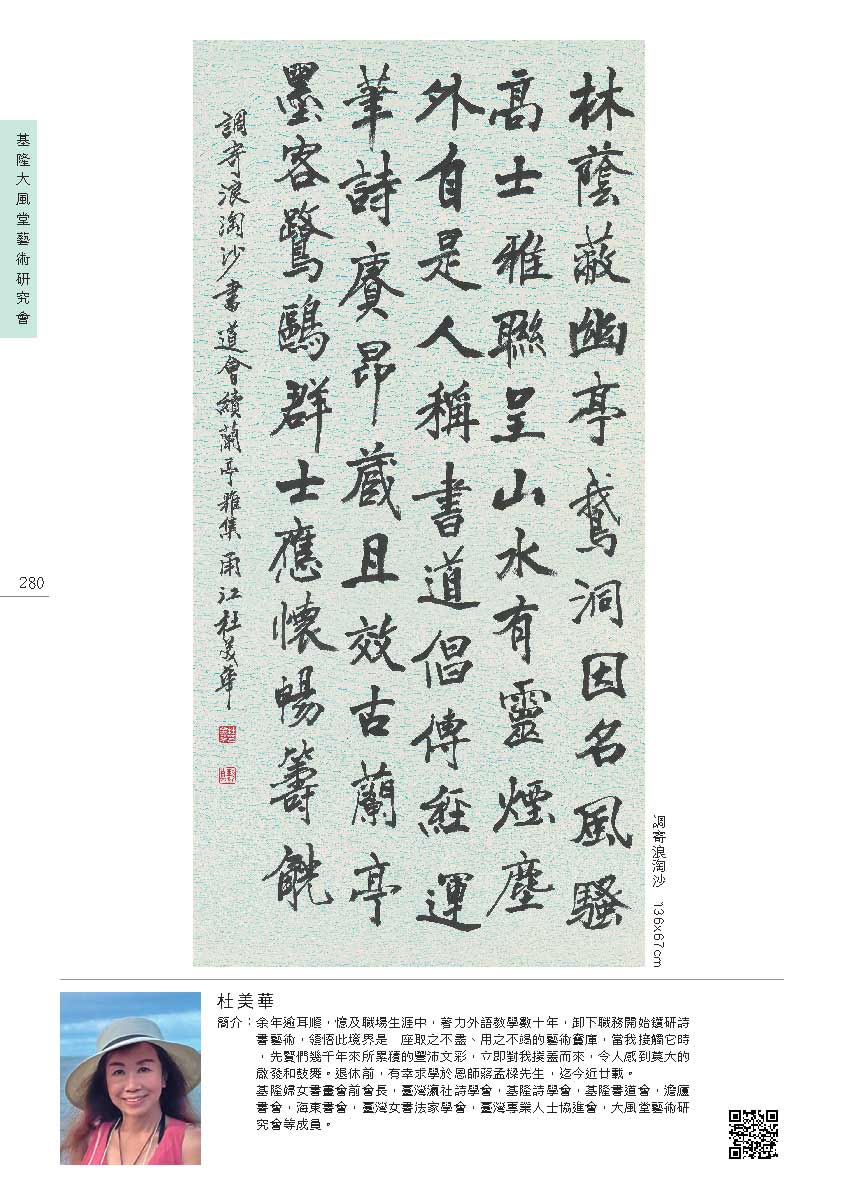 基隆大風堂藝術研究會
280
林蔭蔽幽亭鵝洞因名風騷
高士雅聯呈山水有靈煙塵
外自是人稱書道倡傳經運
華詩賡昂藏且效古蘭亭
墨客鷺鷗群士應懷暢籌觥
調寄浪淘沙書道會續蘭亭雅集甬江杜美華
調寄浪淘沙 136x67cm
杜美華
簡介：余年逾耳順，憶及職場生涯中，著力外語教學數十年，卸下職務開始鑽研詩
書藝術，領悟此境界是 座取之不盡、用之不竭的藝術寶庫，當我接觸它時
，先賢們幾千年來所累積的豐沛文彩，立即對我撲蓋而來，令人感到莫大的
啟發和鼓舞。退休前，有幸求學於恩師蔣孟樑先生，迄今近廿載。
基隆婦女書畫會前會長，臺灣瀛社詩學會，基隆詩學會，基隆書道會，澹廬
書會，海東書會，臺灣女書法家學會，臺灣專業人士協進會，大風堂藝術研
究會等成員。